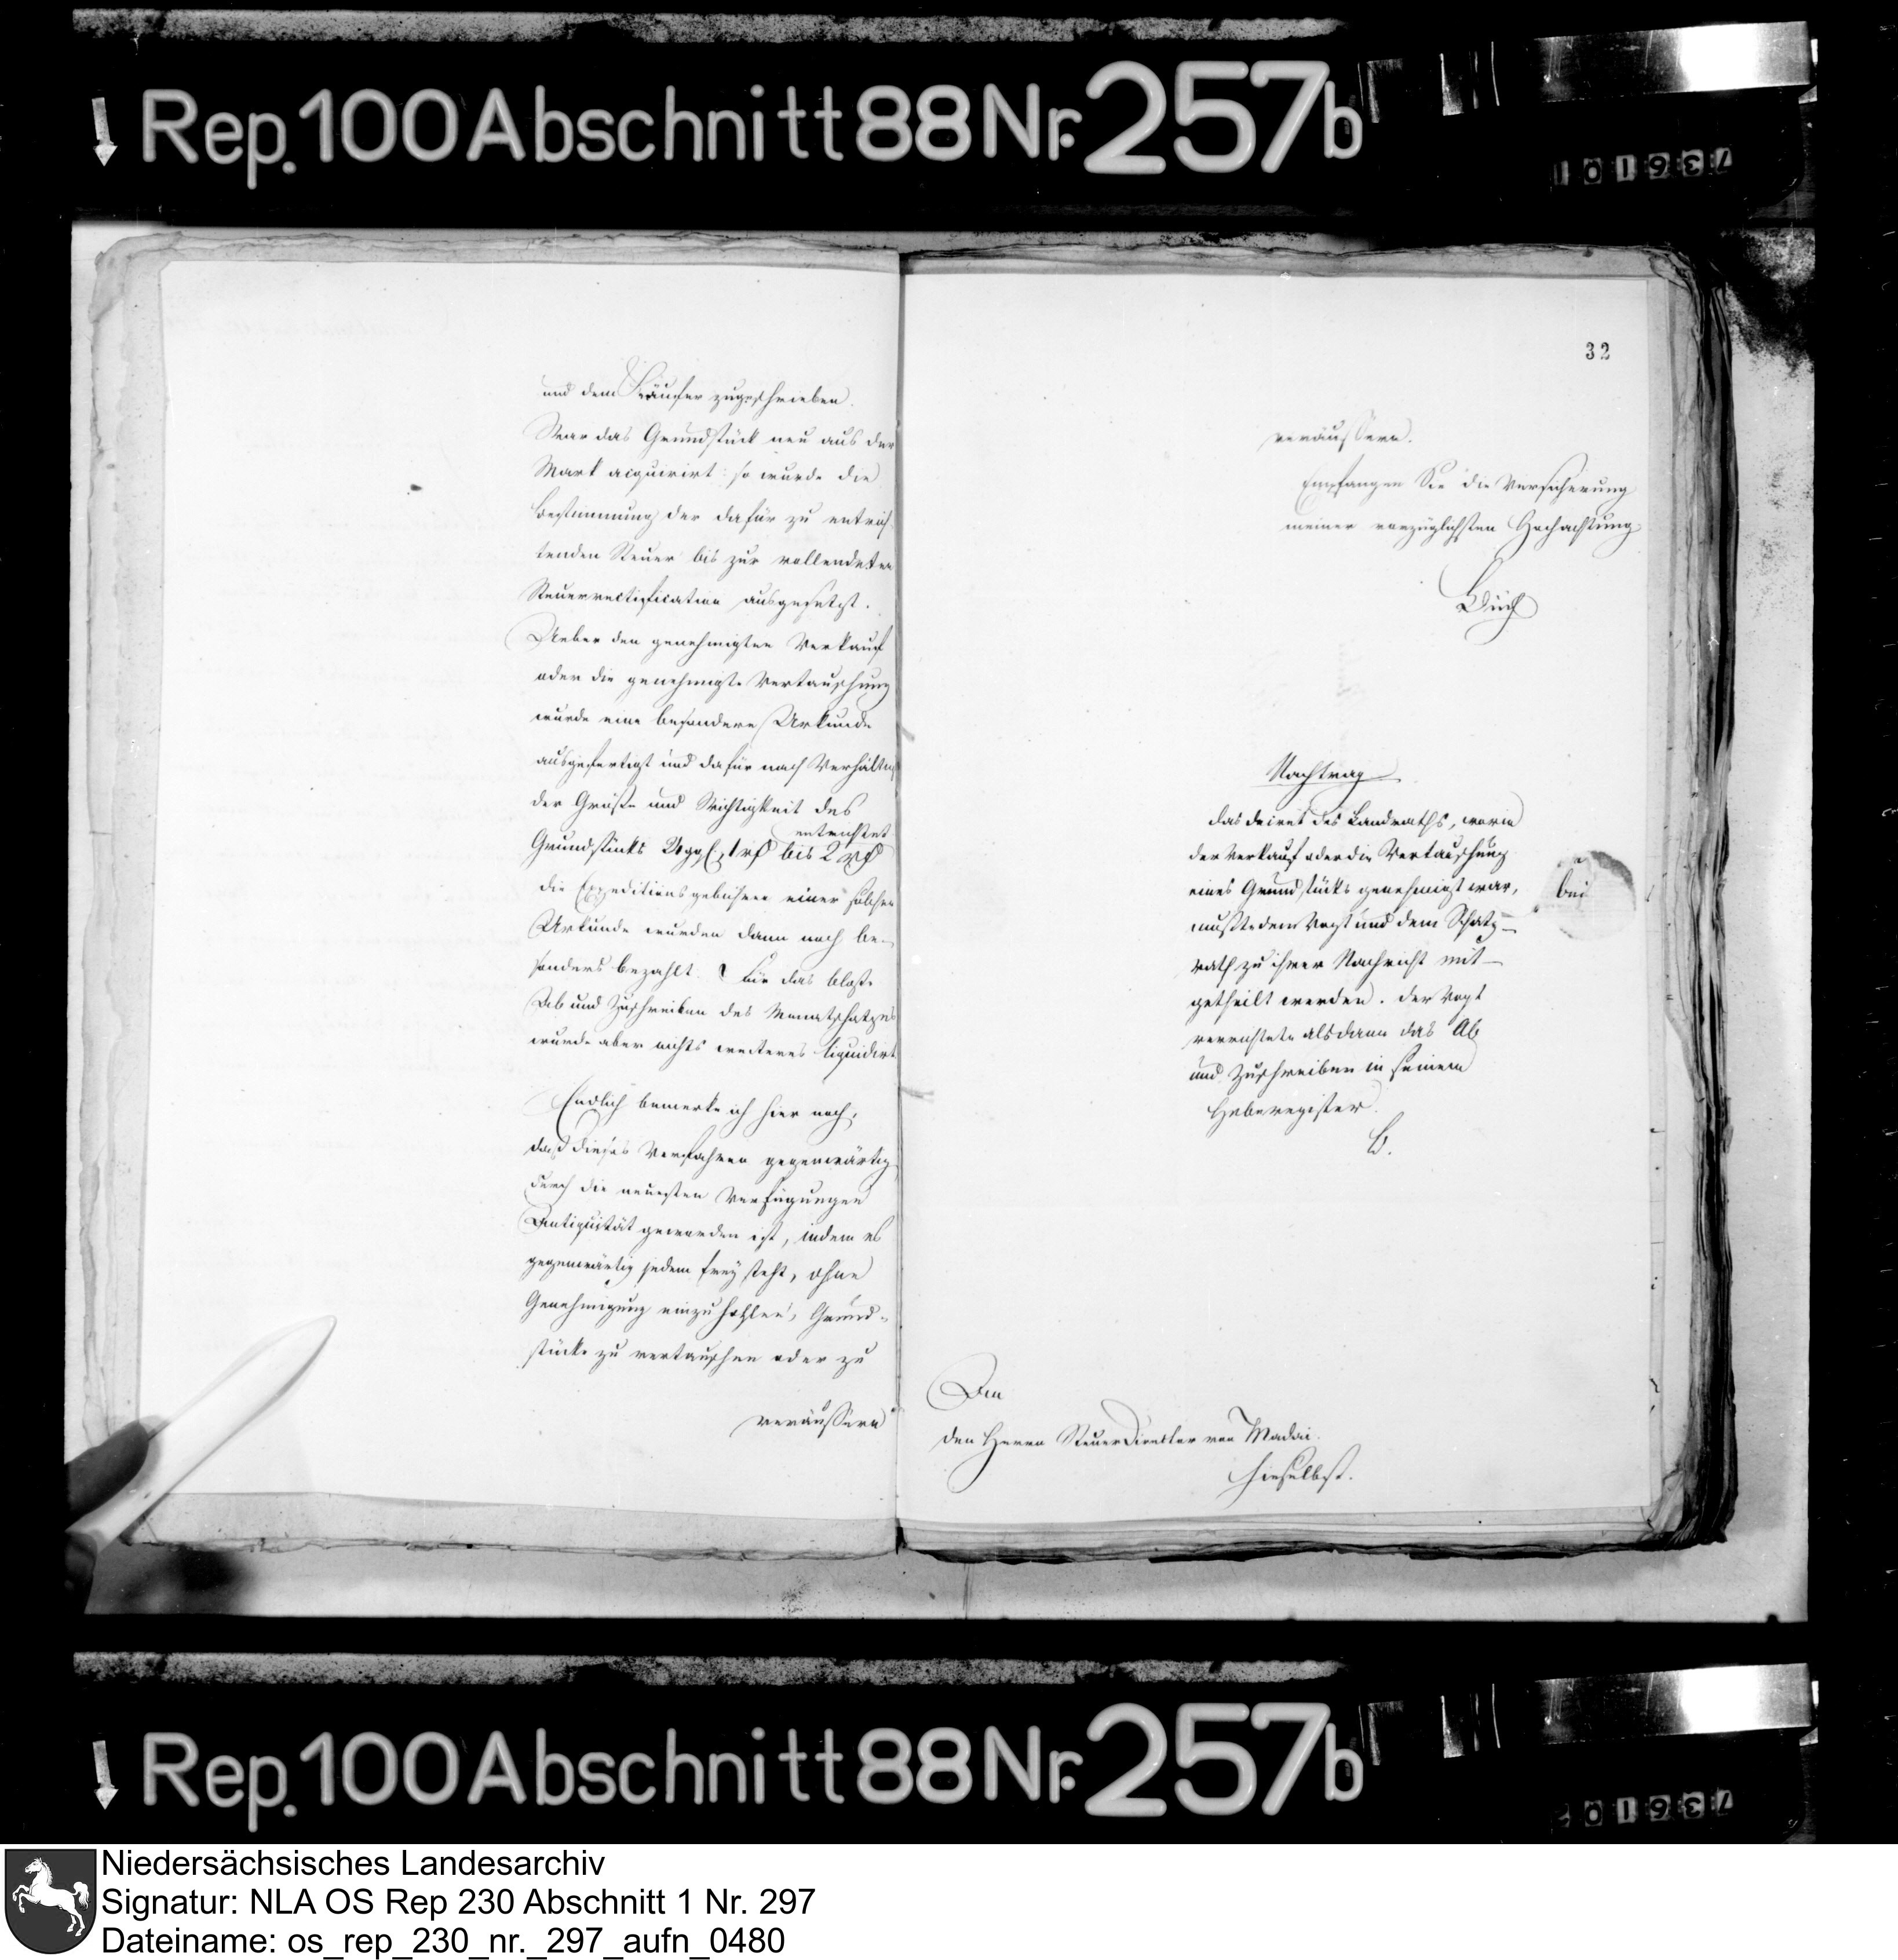 Rep. 100 Abschnitt 88 Nr. 257b
101637
und dem Käufer zugeschrieben.
War das Grundstück neu aus der
Mark acquirirt: so wurde die
Bestimmung der dafür zu entrich
tenden Steuer bis zur vollendeten
Steuerrectification ausgesetzt.
Ueber den genehmigten Verkauf
oder die genehmigte Vertauschung
wurde eine besondere Urkunde
ausgefertigt und dafür nach Verhältniß
der Größe und Wichtigkeit des
entrichtet
Grundstücks 1 bis 2
die Expeditionsgebühren einer solchen
Urkunde wurden dann noch be-
sonders bezahlt. Für das bloße
Ab und Zuschreiben des Monatschatzes
wurde aber nichts weiteres liquidirt
Endlich bemerke ich hier noch,
daß dieses Verfahren gegenwärtig
durch die neuesten Verfügungen
Antiquität geworden ist, indem es
gegenwärtig jedem frey steht, ohne
Genehmigung einzuhohlen, Grund-
stücke zu vertauschen oder zu
veräussern
32
veräussern.
Empfangen Sie die Versicherung
meiner vorzüglichsten Hochachtung
Nachtrag
das decret des Landraths, worin
der Verkauf oder die Vertauschung
eines Grundstücks genehmigt war,
mußte dem Vogt und dem Schatz-
bei
rath zu ihrer Nachricht mit-
getheilt werden. der Vogt
verrichtete alsdann das Ab
und Zuschreiben in seinem
Heberegister.
B.
An
den Herrn Steuerdirector von Madai.
hieselbst.
Rep. 100 Abschnitt 88 Nr. 257b
Niedersächsisches Landesarchiv
Signatur: NLA OS Rep 230 Abschnitt 1 Nr. 297
Dateiname: os_rep_230_nr._297_aufn_0480